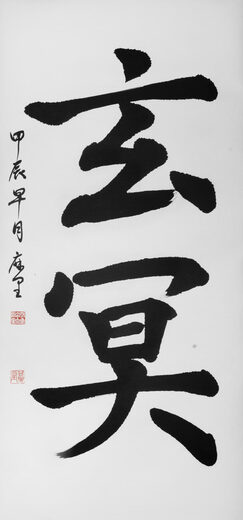 玄冥
甲辰早月